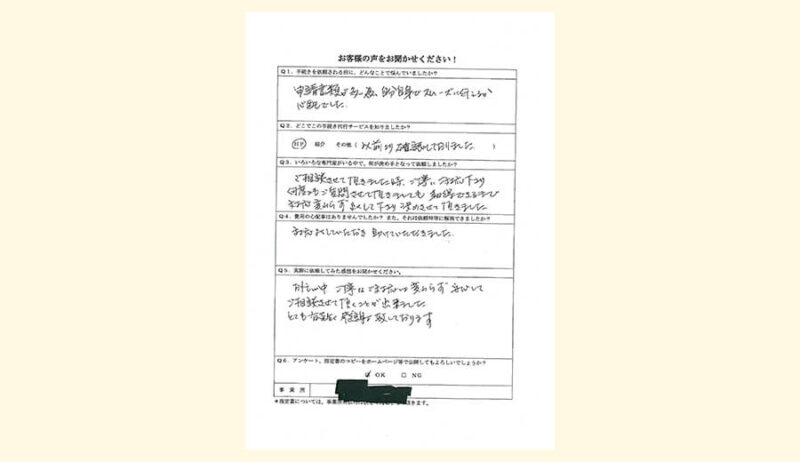 お客様の声をお聞かせください！
Q1．手続きを依頼される前に、どんなことで悩んでいましたか？
申請書類が多い為、自分自身でスムーズに行えるか
心配でした。
Q2．どこでこの手続き代行サービスを知りましたか？
HP 紹介 その他（以前より確認しておりました。）
Q3．いろいろな専門家がいる中で、何が決め手となって依頼しましたか？
ご相談させて頂きました際、ご丁寧に対応下さり
何度もご質問させて頂きましても
変わらず 下さり 決めさせて頂きました
Q4．費用の心配事はありませんでしたか？また、それは依頼時等に解消できましたか？
対応していただき 助けていただきました。
Q5．実際に依頼してみた感想をお聞かせください。
お忙しい中 ご丁寧にご対応 変わらず 安心して
ご相談させて頂くことが出来ました
とても 感謝致しております
Q6．アンケート、指定書のコピーをホームページ等で公開してもよろしいでしょうか？
☑ OK □ NG
事業所
＊指定書については、事業所 きます。